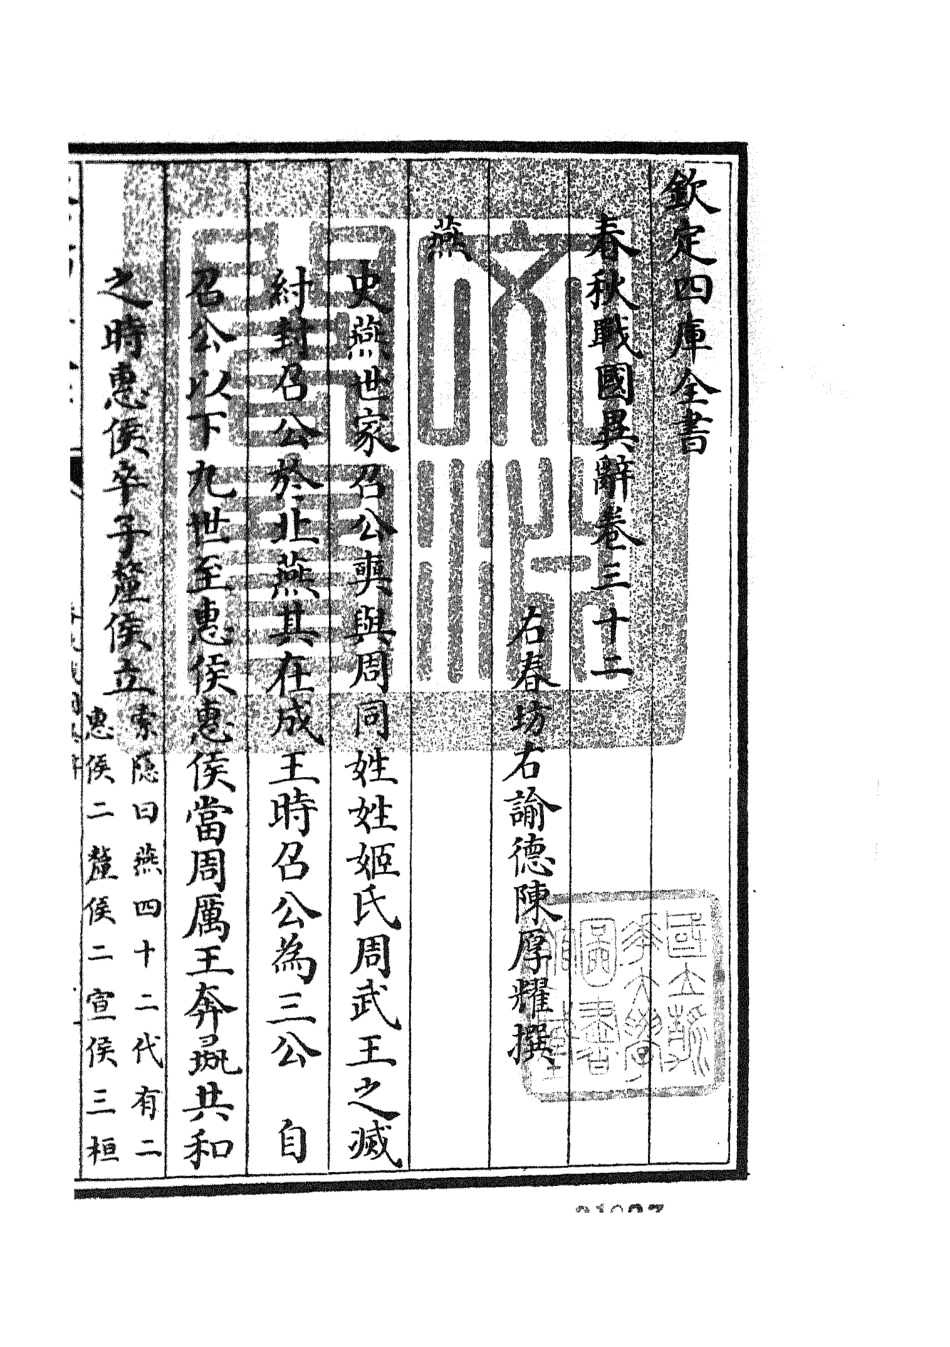 欽定四庫全書
春秋戰國異辭卷三十二
右春坊右諭德陳厚耀撰
燕
史燕世家召公奭與周同姓姓姬氏周武王之滅
紂封召公於北燕其在成王時召公為三公　自
召公以下九世至惠侯惠侯當周厲王奔彘共和
之時惠侯卒子釐侯立
索隱曰燕四十二代有二
惠侯二釐侯二宣侯三桓